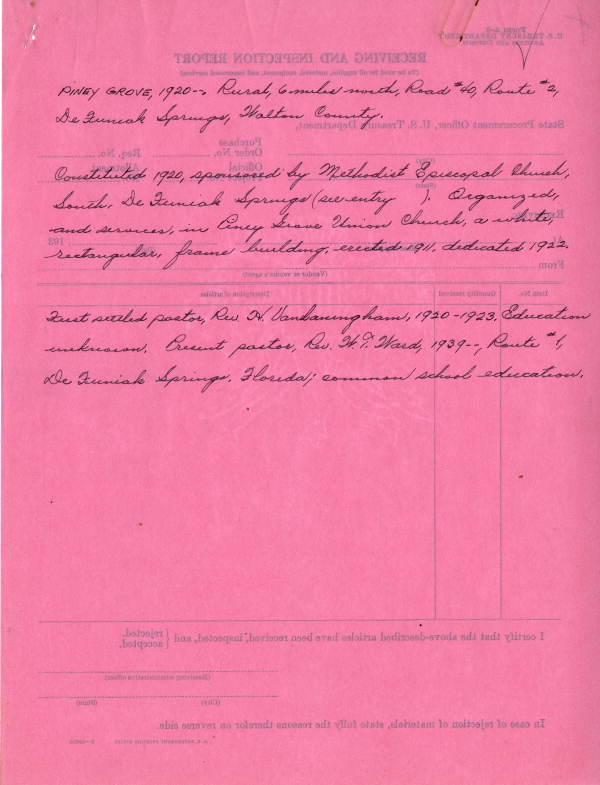 PINEY GROVE, 1920--. Rural, 6 miles north, Road #40, Route #2,
De Funiak Springs, Walton County.
Constituted 1920, sponsored by Methodist Episcopal Church,
South, De Funiak Springs (see entry    ). Organized,
and services, in Piney Grove Union Church, a white,
rectangular, frame building, erected 1911, dedicated 1922.
First settled pastor, Rev. H. 1920-1923, Education
unknown. Present pastor, Rev. W.T. Ward, 1939--, Route #1,
De Funiak Springs, Florida; common school education.
RECEIVING AND INSPECTION REPORT
U.S. TREASURY DEPARTMENT
State Procurement Officer, U. S. Treasury Department,
Purchase
Order No.
Req. No.
Official
From
(Vendor or vendor's agent)
Item No.
Quantity received
Description of articles
I certify that the above-described articles have been received, inspected, and { rejected.
accepted.
(Receiving administrative officer)
(City)
(State)
In case of rejection of materials, state fully the reasons therefor on reverse side.